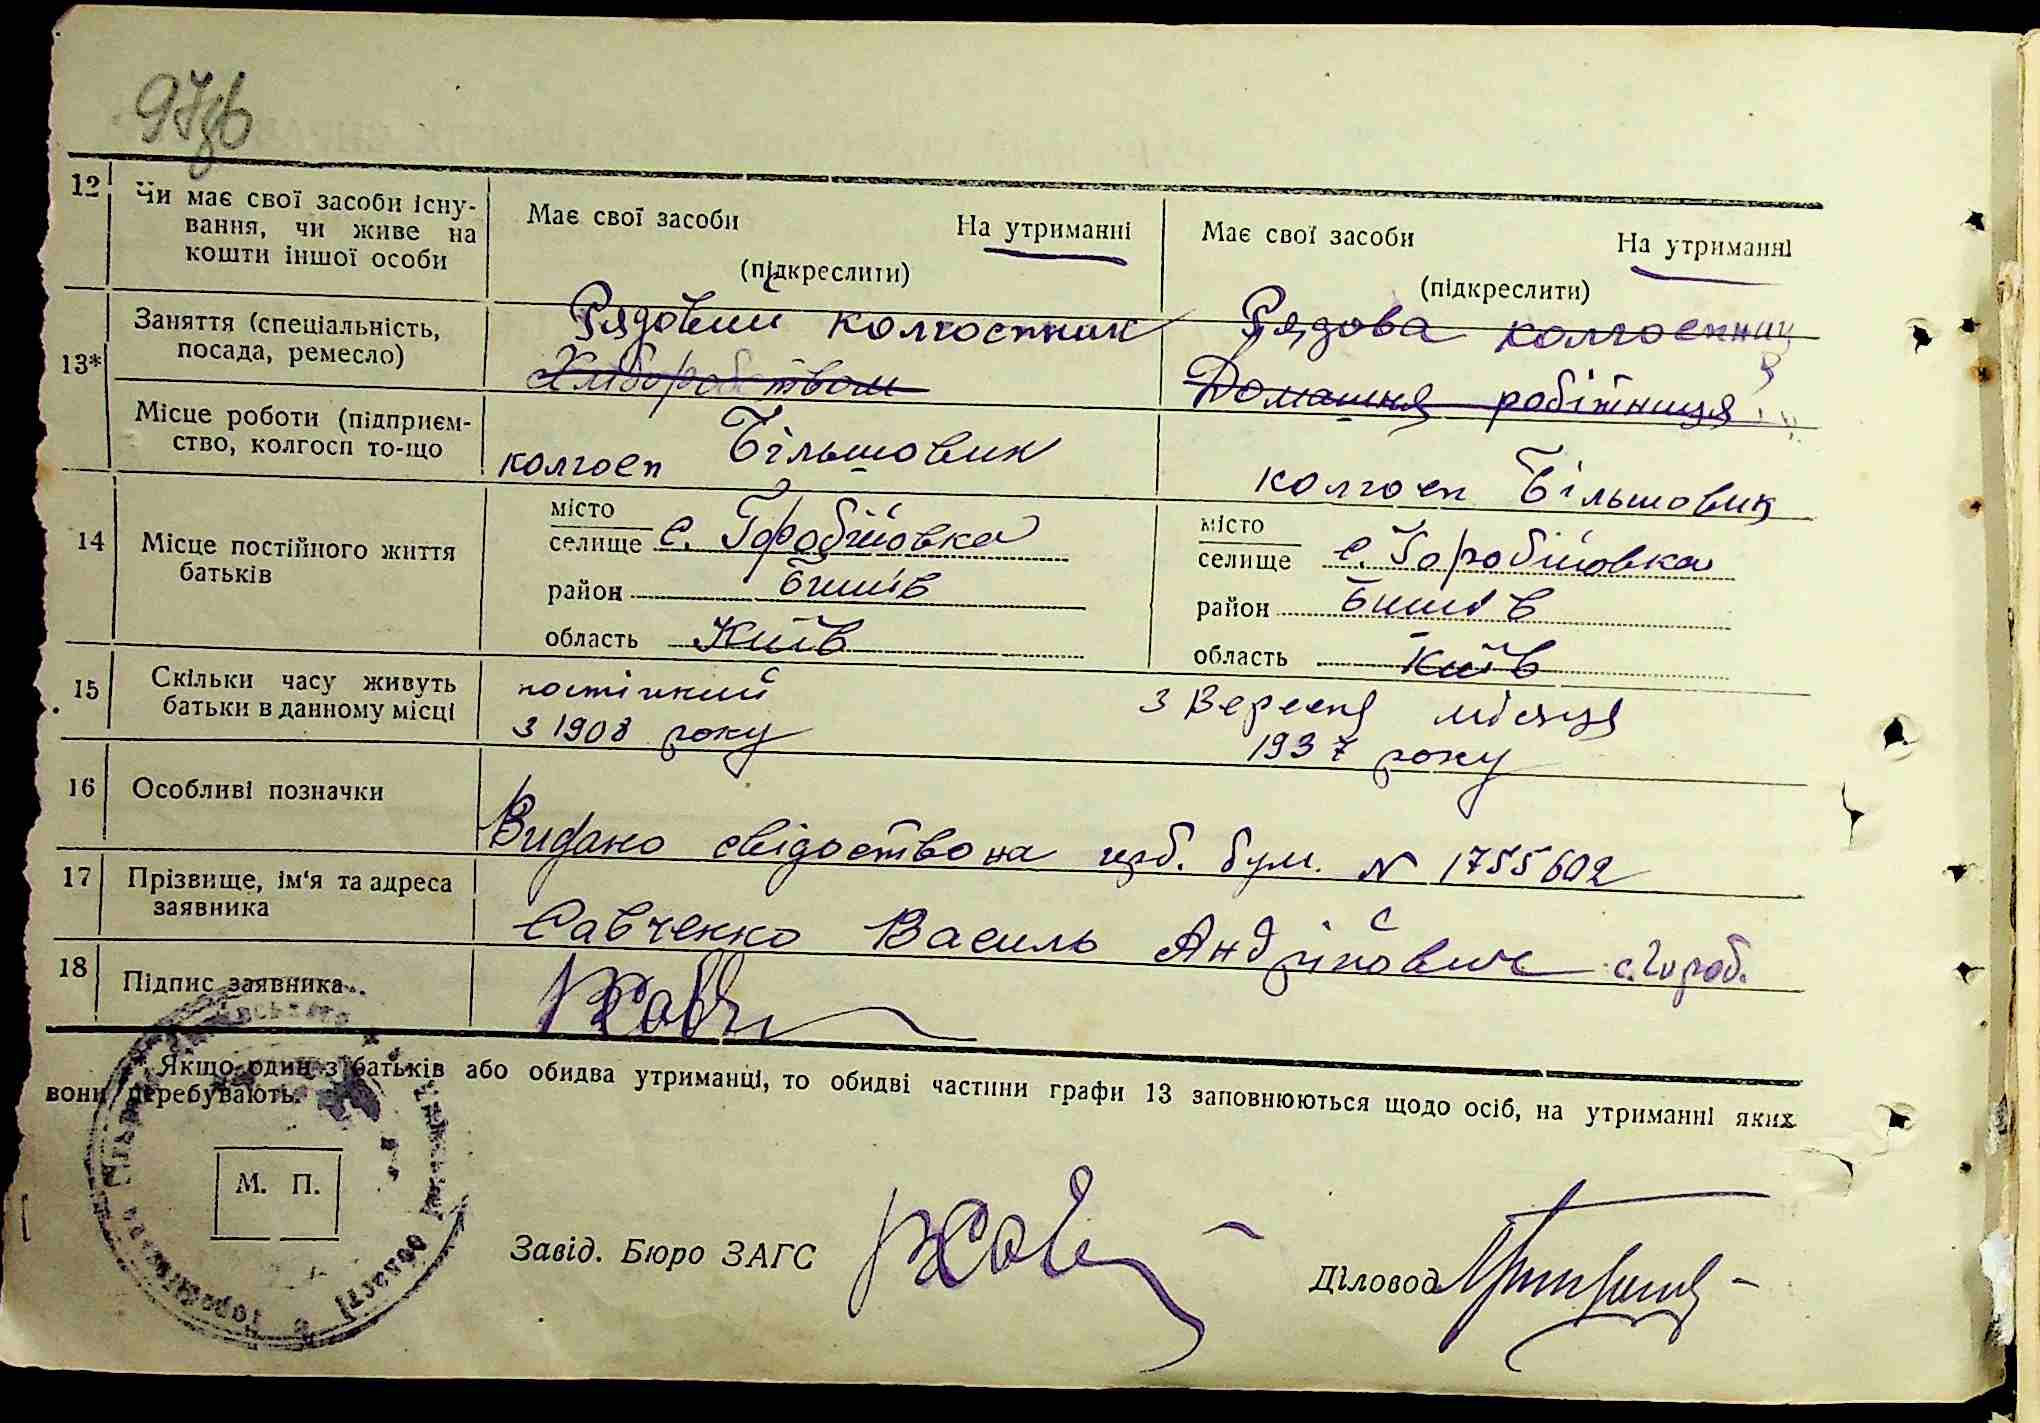 97зв
12 Чи має свої засоби існу- Має свої засоби На утриманні Має свої засоби На утриманні
вання, чи живе на
кошти іншої особи (підкреслити) (підкреслити)
Заняття (спеціальність, Рядовий колгоспник Рядова колгоспниця
13* посада, ремесло) Хліборобством Домашня робітниця
Місце роботи (підприєм-
ство, колгосп то-що колгосп Більшовик колгосп Більшовик
14 Місце постійного життя
батьків
місто місто
селище с. Горобіївка селище с. Горобіївка
район Бишів район Бишів
область Київ область Київ
15 Скільки часу живуть постійний з Вересня місяця
батьки в данному місці з 1908 року 1937 року
16 Особливі позначки
Видано свідоство на герб. бум. № 1755602
17 Прізвище, ім'я та адреса
заявника Савченко Василь Андрійович с. Гороб.
18 Підпис заявника
* Якщо один з батьків або обидва утриманці, то обидві частини графи 13 заповнюються щодо осіб, на утриманні яких
вони перебувають.
М. П.
Завід. Бюро ЗАГС
Діловод